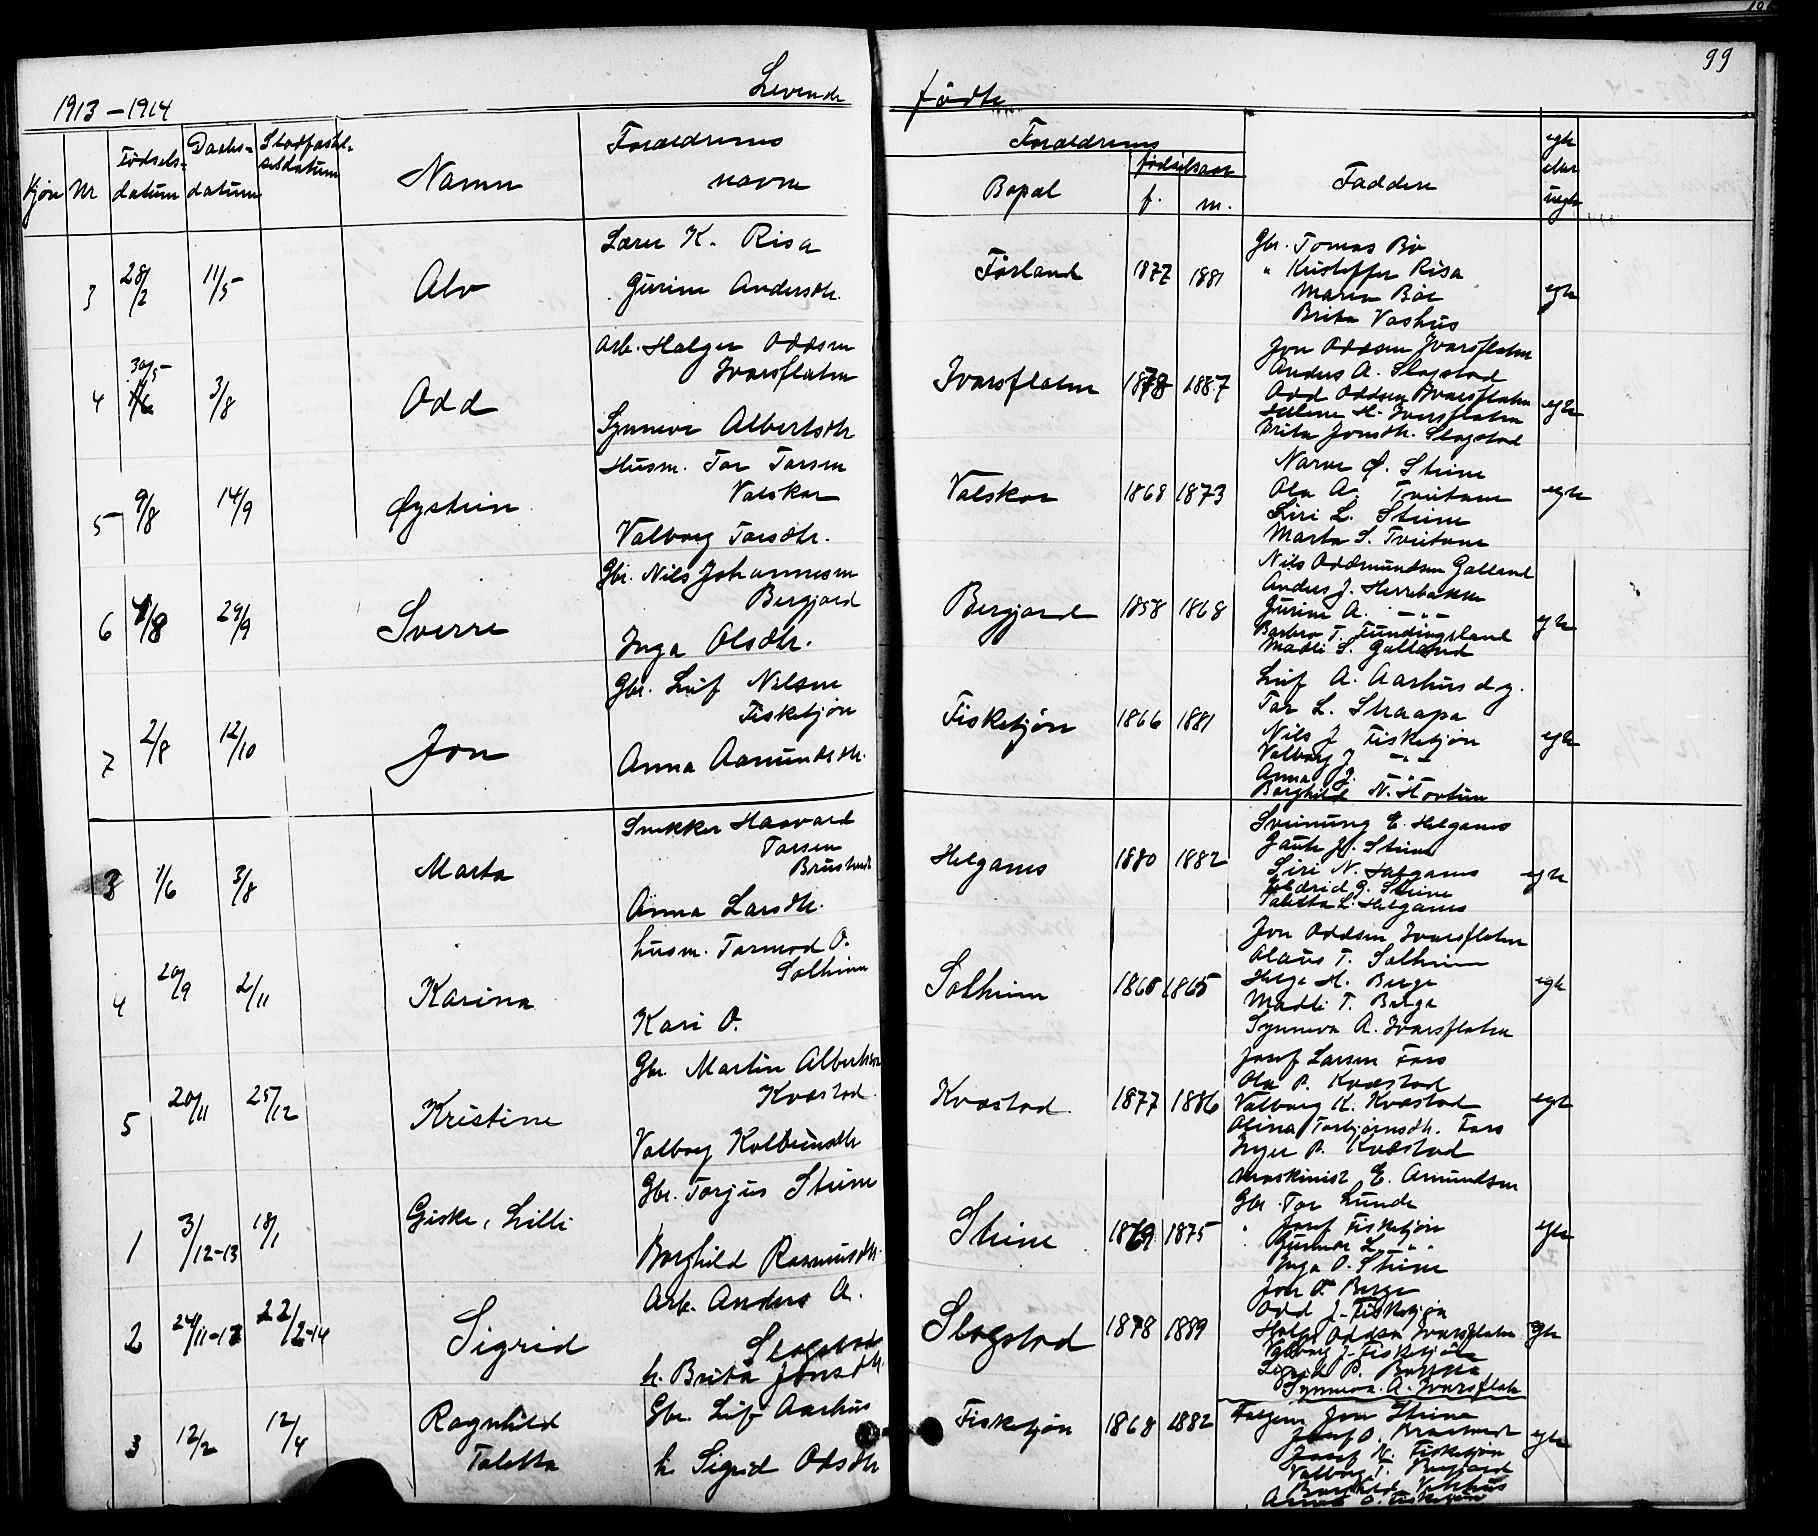 99
1913-1914 Levende fødte
Kjøn Nr Fødsels-datum Daabs-datum Stadfæst-elsdatum Navn Forældrenes navne Forældrenes Bopæl fødselsaar f. m. Faddere egte eller uegte
3 28/2 11/5 Alv
Lærer K. Risa
Gurine Andersdtr.
Førland 1877 1881
Gbr. Tomas Bø
" Kristoffer Risa
Maria Bøe
Brita Vashus
egte
4 30/5 3/8 Odd
Arb. Helger Oddsen
Ivarsflaten
Synneva Albertsdtr
Ivarsflaten 1878 1887
Jon Oddsen Ivarsflaten
Anders A. Slogstad
Odd Oddsen Ivarsflaten
Helene H. Ivarsflaten
Brita Jonsdtr. Slogstad
egte
5 9/8 14/9 Øystein
Husm. Tor Torsen
Valskor
Valborg Torsdtr.
Valskor 1868 1873
Narve Ø. Steine
Ola A. Tveitane
Siri L. Steine
Marta S. Tveitane
egte
6 /8 29/9 Sverre
Gbr. Nils Johannesen
Bergjord
Inga Olsdtr.
Bergjord 1858 1868
Nils Oddmundsen Galland
Anders J. Herrebakke
Gurine A. - " -
Barbro T. Fundingsland
Madli S. Galland
egte
7 2/8 12/10 Jon
Gbr. Leif Nilsen
Fisketjøn
Anna Aamundsdtr.
Fisketjøn 1866 1881
Leif A. Aarhus d.y.
Tor L. Straapa
Nils J Fisketjøn
Valborg J - " -
Anna J. - " -
Borghild N. Hovtun
egte
3 1/6 3/8 Marta
Snekker Haavard
Torsen
Anna Larsdtr.
Helganes 1880 1882
Sveinung E. Helganes
Gaute G. Steine
Siri N. Helganes
Eldrid G. Steine
Taletta L. Helganes
egte
4 20/9 2/11 Karina
husm. Tormod O.
Solheim
Kari O.
Solheim 1865 1865
Jon Oddsen Ivarsflaten
Olaus T. Solheim
Helge H. Berge
Madli T. Berge
Synneva A. Ivarsflaten
egte
5 20/11 25/12 Kristine
Gbr. Martin Albertsen
Kvæstad
Valborg Kolbeinsdtr
Kvæstad 1877 1886
Josef Larsen Foss
Ola P. Kvæstad
Valborg K. Kvæstad
Olina Torbjørnsdtr. Foss
Inger P. Kvæstad
egte
1 3/12-13 18/1 Giske, Lilli
Gbr. Torjus Steine
Borghild Rasmusdtr.
Steine 1869 1875
Maskinist E. Amundsen
Gbr Tor Lunde
" Josef Fisketjøn
Gunnar L. " "
Inga O. Steine
egte
2 24/11-13 22/2-14 Sigrid
Arb. Anders A.
Slogstad
h. Brita Jonsdtr.
Slogstad 1878 1889
Jon O. Berge
Odd J. Fisketjøn
Helge Oddsen Ivarsflaten
Valborg J. Fisketjøn
Sigrid P.
Synneva A. Ivarsflaten
egte
3 12/2 12/4 Ragnhild
Taletta
Gbr. Leif Aarhus
h. Sigrid Odsdtr
Fisketjøn 1868 1882
Jon Steine
Josef O.
Josef N. Fisketjøn
Valborg T. Bergjord
Borghild
Anna O. Fisketjøn
egte